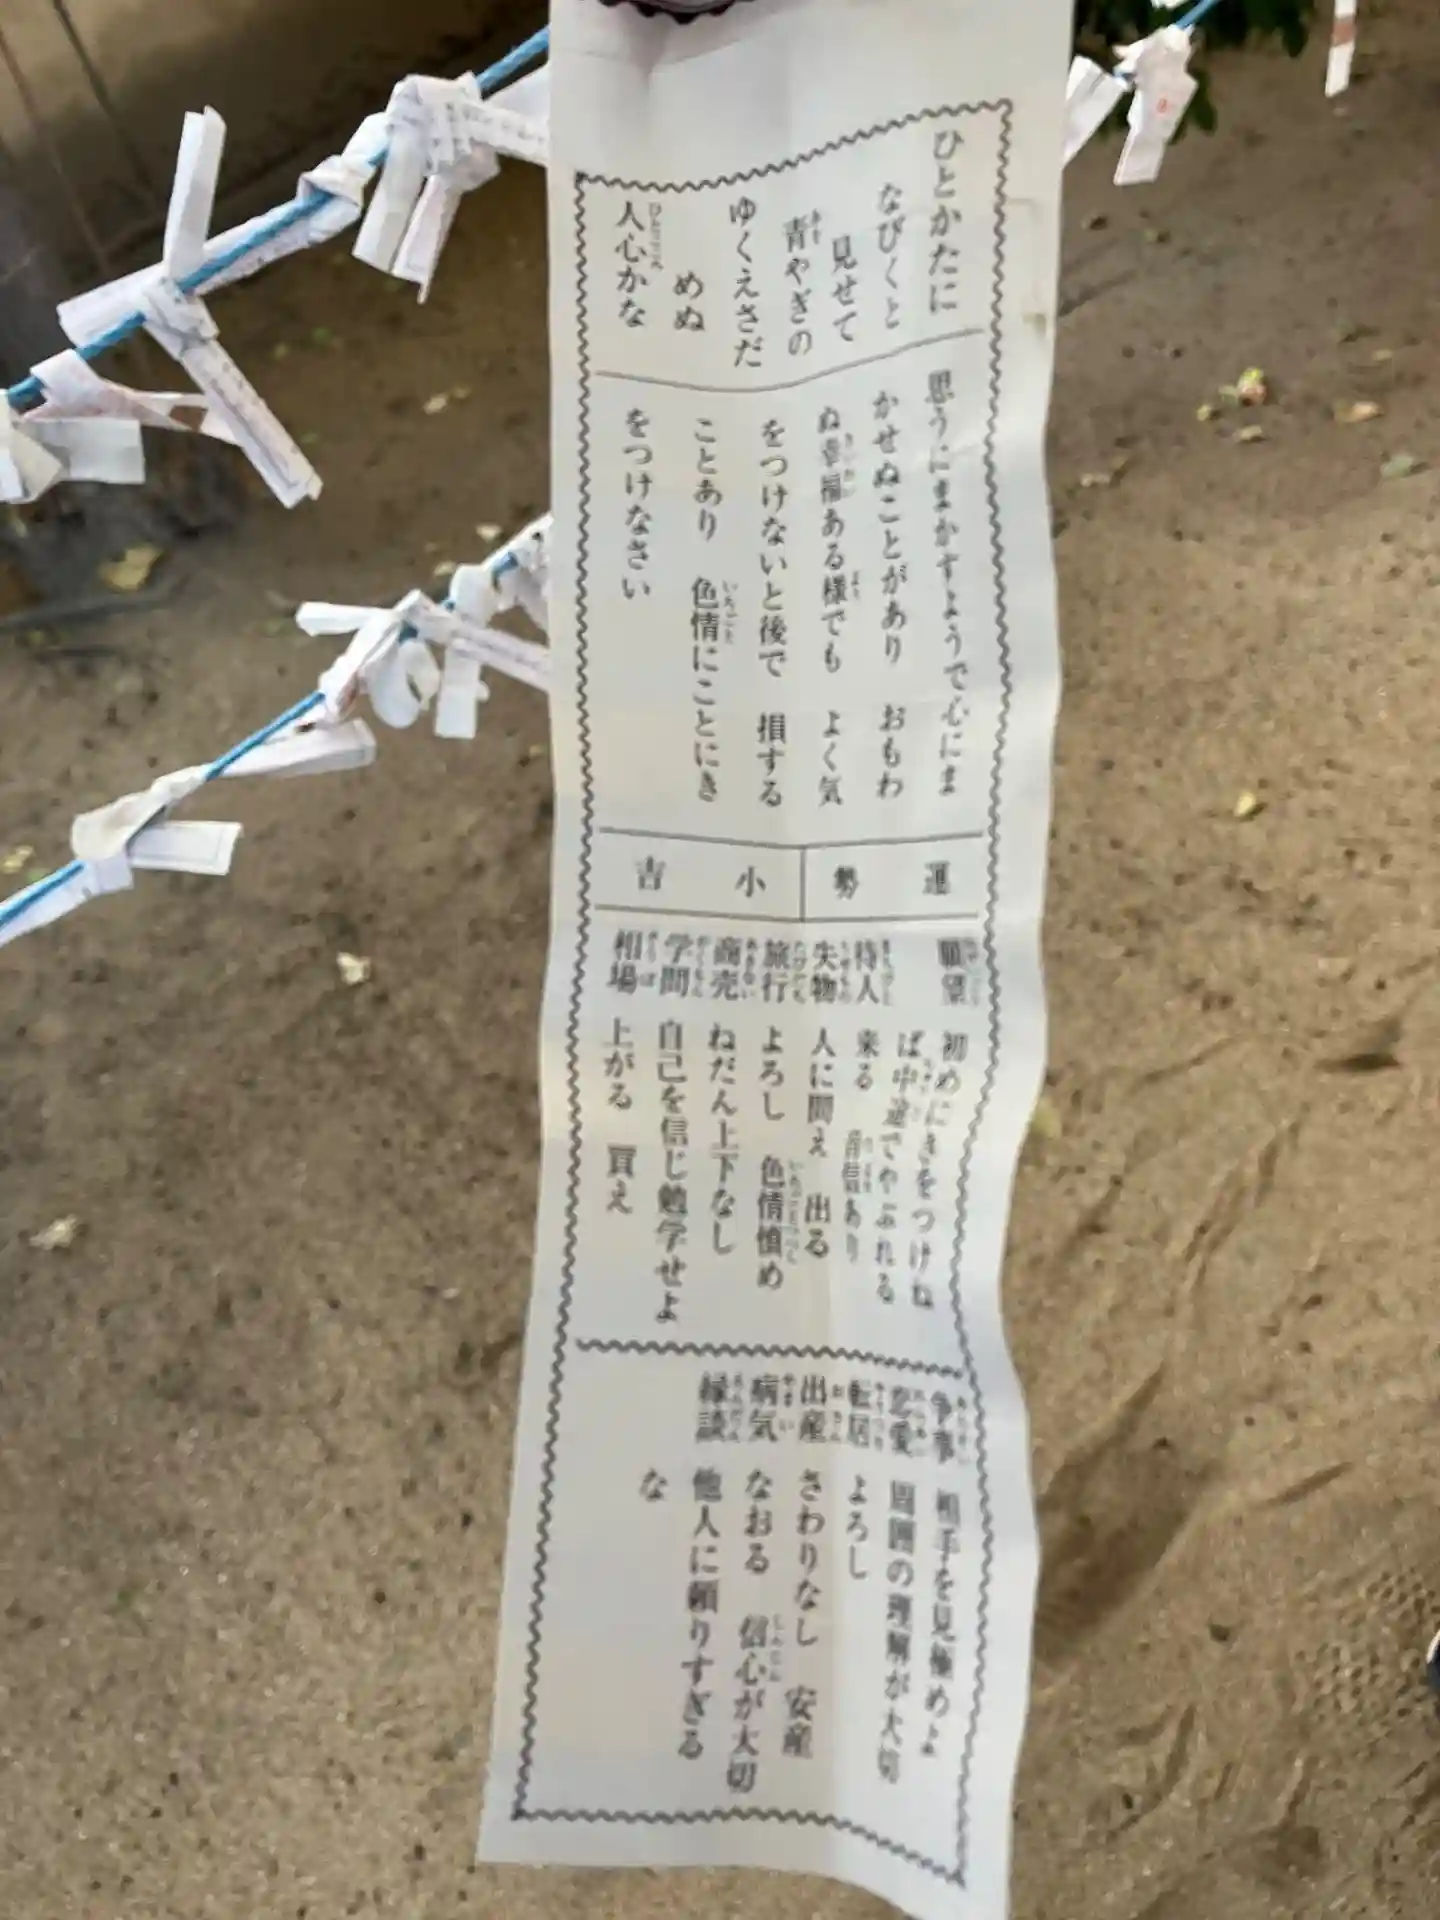 ひとかたに
なびくと
見せて
青やぎの
ゆくえさだ
めぬ
人心かな
思うにまかすようで心にま
かせぬことがあり おもわ
ぬ幸福ある様でも よく気
をつけないと後で 損する
ことあり 色情にことにき
をつけなさい
運勢 小吉
願望 初めにきをつけね
ば中途でやぶれる
待人 来る 音信あり
失物 人に問え 出る
旅行 よろし 色情慎め
商売 ねだん上下なし
学問 自己を信じ勉学せよ
相場 上がる 買え
争事 相手を見極めよ
恋愛 周囲の理解が大切
転居 よろし
出産 さわりなし 安産
病気 なおる 信心が大切
縁談 他人に頼りすぎる
な